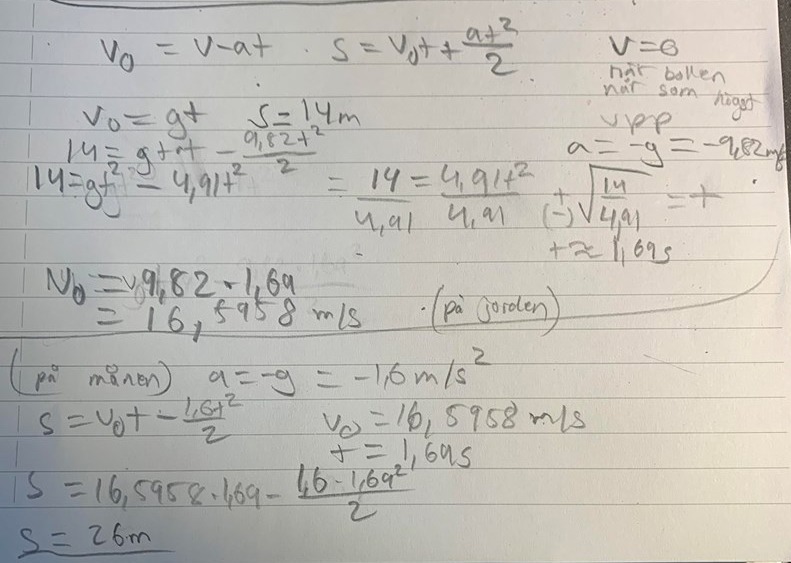 v₀ = v-at . s = v₀t + at²/2 v=0
när bollen
når som högst
v₀ = gt s=14m upp
14 = gt·t - 9,82t²/2 a = -g = -9,82 m/s
14=gt² - 4,91t² = 14/4,91 = 4,91t²/4,91 +(-)√14/4,91 = t
t ≈ 1,69s
v₀ = 9,82 · 1,69
= 16,5958 m/s (på jorden)
(på månen) a = -g = -1,6 m/s²
s = v₀t - 1,6t²/2 v₀ = 16,5958 m/s
t = 1,69s
s = 16,5958 · 1,69 - 1,6 · 1,69²/2
s = 26m